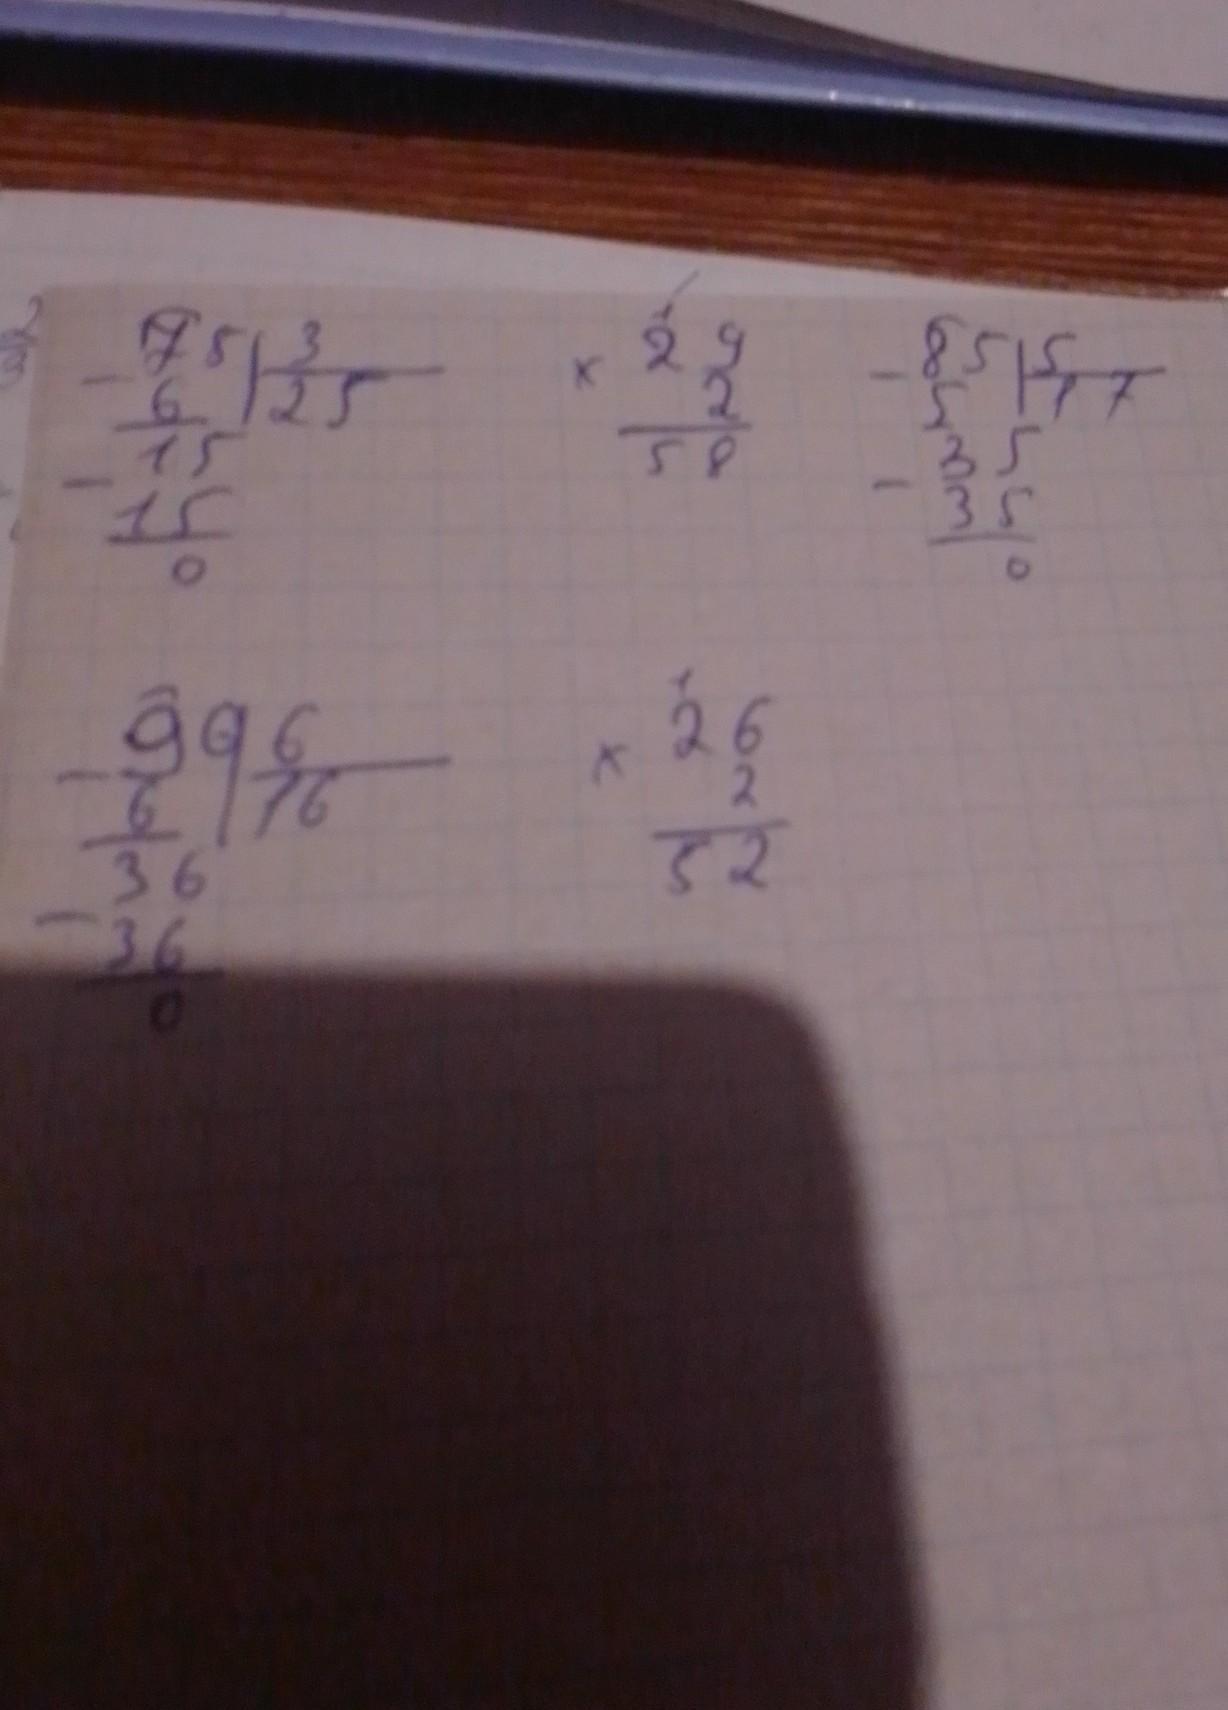 75 | 3
- 6 | 25
15
- 15
0
1
2 9
× 2
5 8
85 | 5
- 5 | 17
35
- 35
0
96 | 6
- 6 | 16
36
- 36
0
1
2 6
× 2
5 2